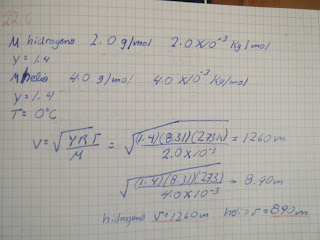 22.6
M hidrogeno 2.0 g/mol 2.0x10⁻³ Kg/mol
γ=1.4
M helio 4.0 g/mol 4.0x10⁻³ Kg/mol
γ=1.4
T= 0°C
V=√(γRT/M) = √((1.4)(8.31)(273k)/2.0x10⁻³) = 1260m
√((1.4)(8.31)(273)/4.0x10⁻³) = 8.90m
hidrogeno V=1260m helio v=890m